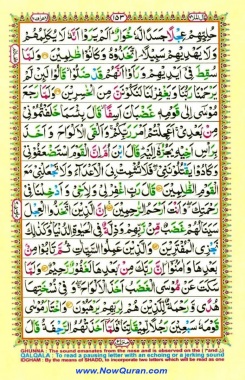 ١٥٣
حُلِيِّهِمْ عِجْلًا جَسَدًا لَّهٗ خُوَارٌ ؕ اَلَمْ يَرَوْا اَنَّهٗ لَا يُكَلِّمُهُمْ
وَلَا يَهْدِيْهِمْ سَبِيْلًا ۘ اِتَّخَذُوْهُ وَكَانُوْا ظٰلِمِيْنَ ۝ وَلَمَّا
سُقِطَ فِيْۤ اَيْدِيْهِمْ وَرَاَوْا اَنَّهُمْ قَدْ ضَلُّوْا ۙ قَالُوْا لَئِنْ لَّمْ
يَرْحَمْنَا رَبُّنَا وَيَغْفِرْ لَنَا لَنَكُوْنَنَّ مِنَ الْخٰسِرِيْنَ ۝ وَلَمَّا رَجَعَ
مُوْسٰۤى اِلٰى قَوْمِهٖ غَضْبَانَ اَسِفًا ۙ قَالَ بِئْسَمَا خَلَفْتُمُوْنِيْ
مِنْۢ بَعْدِيْ ۚ اَعَجِلْتُمْ اَمْرَ رَبِّكُمْ ۚ وَاَلْقَى الْاَلْوَاحَ وَاَخَذَ
بِرَاْسِ اَخِيْهِ يَجُرُّهٗۤ اِلَيْهِ ؕ قَالَ ابْنَ اُمَّ اِنَّ الْقَوْمَ اسْتَضْعَفُوْنِيْ
وَكَادُوْا يَقْتُلُوْنَنِيْ ۖ فَلَا تُشْمِتْ بِيَ الْاَعْدَآءَ وَلَا تَجْعَلْنِيْ مَعَ
الْقَوْمِ الظّٰلِمِيْنَ ۝ قَالَ رَبِّ اغْفِرْ لِيْ وَلِاَخِيْ وَاَدْخِلْنَا فِيْ
رَحْمَتِكَ ۖ وَاَنْتَ اَرْحَمُ الرّٰحِمِيْنَ ۝ اِنَّ الَّذِيْنَ اتَّخَذُوا الْعِجْلَ
سَيَنَالُهُمْ غَضَبٌ مِّنْ رَّبِّهِمْ وَذِلَّةٌ فِي الْحَيٰوةِ الدُّنْيَا ؕ وَكَذٰلِكَ
نَجْزِي الْمُفْتَرِيْنَ ۝ وَالَّذِيْنَ عَمِلُوا السَّيِّاٰتِ ثُمَّ تَابُوْا مِنْۢ
بَعْدِهَا وَاٰمَنُوْۤا ۫ اِنَّ رَبَّكَ مِنْۢ بَعْدِهَا لَغَفُوْرٌ رَّحِيْمٌ ۝ وَلَمَّا
سَكَتَ عَنْ مُّوْسَى الْغَضَبُ اَخَذَ الْاَلْوَاحَ ۖ وَفِيْ نُسْخَتِهَا
هُدًى وَّرَحْمَةٌ لِّلَّذِيْنَ هُمْ لِرَبِّهِمْ يَرْهَبُوْنَ ۝ وَاخْتَارَ مُوْسٰى
قَوْمَهٗ سَبْعِيْنَ رَجُلًا لِّمِيْقَاتِنَا ۚ فَلَمَّاۤ اَخَذَتْهُمُ الرَّجْفَةُ قَالَ
GHUNNA : The sound emanates from the nose and is observed on the
QALQALA : To read a pausing letter with an echoing or a jerking sound
IDGHAM : By the means of SHADD, to incorporate two letters which will be read as one
www.NowQuran.com